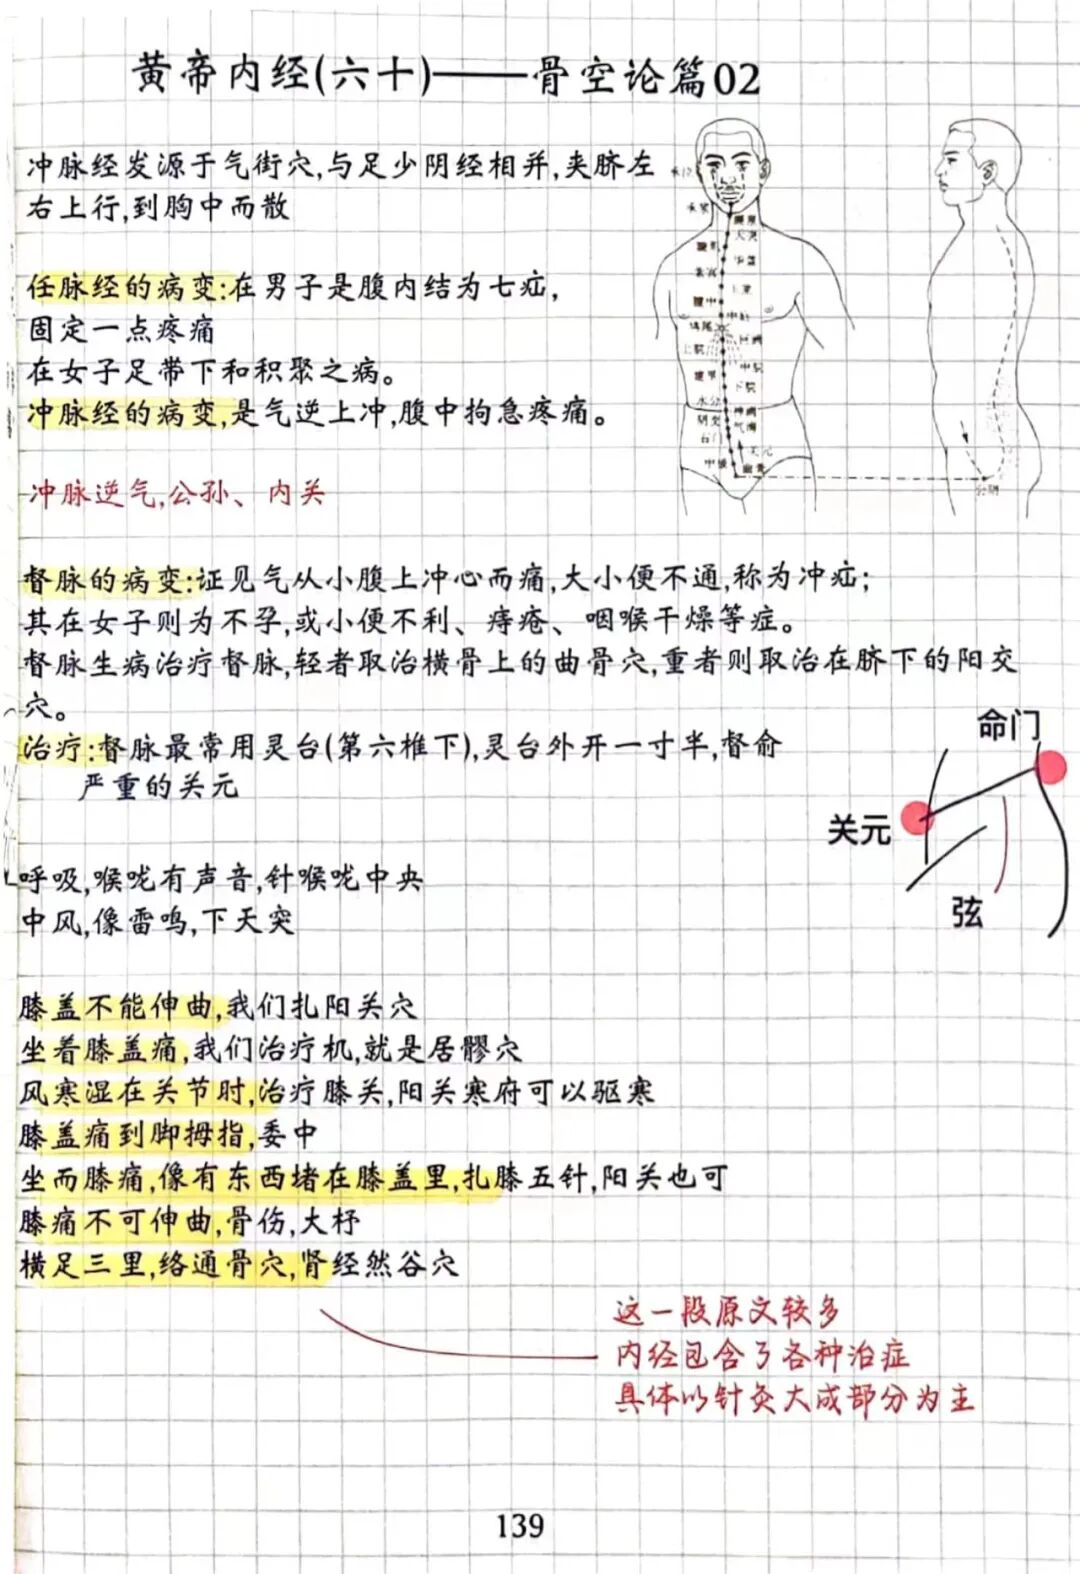 黄帝内经(六十)——骨空论篇02
冲脉经发源于气街穴,与足少阴经相并,夹脐左
右上行,到胸中而散
任脉经的病变:在男子是腹内结为七疝,
固定一点疼痛
在女子足带下和积聚之病。
冲脉经的病变,是气逆上冲,腹中拘急疼痛。
冲脉逆气,公孙、内关
督脉的病变:证见气从小腹上冲心而痛,大小便不通,称为冲疝;
其在女子则为不孕,或小便不利、痔疮、咽喉干燥等症。
督脉生病治疗督脉,轻者取治横骨上的曲骨穴,重者则取治在脐下的阴交
穴。
治疗:督脉最常用灵台(第六椎下),灵台外开一寸半,督俞
严重的关元
命门
关元
弦
呼吸,喉咙有声音,针喉咙中央
中风,像雷鸣,下天突
膝盖不能伸曲,我们扎阳关穴
坐着膝盖痛,我们治疗机,就是居髎穴
风寒湿在关节时,治疗膝关,阳关寒府可以驱寒
膝盖痛到脚拇指,委中
坐而膝痛,像有东西堵在膝盖里,扎膝五针,阳关也可
膝痛不可伸曲,骨伤,大杼
横足三里,络通骨穴,肾经然谷穴
这一段原文较多
内经包含了各种治症
具体以针灸大成部分为主
139